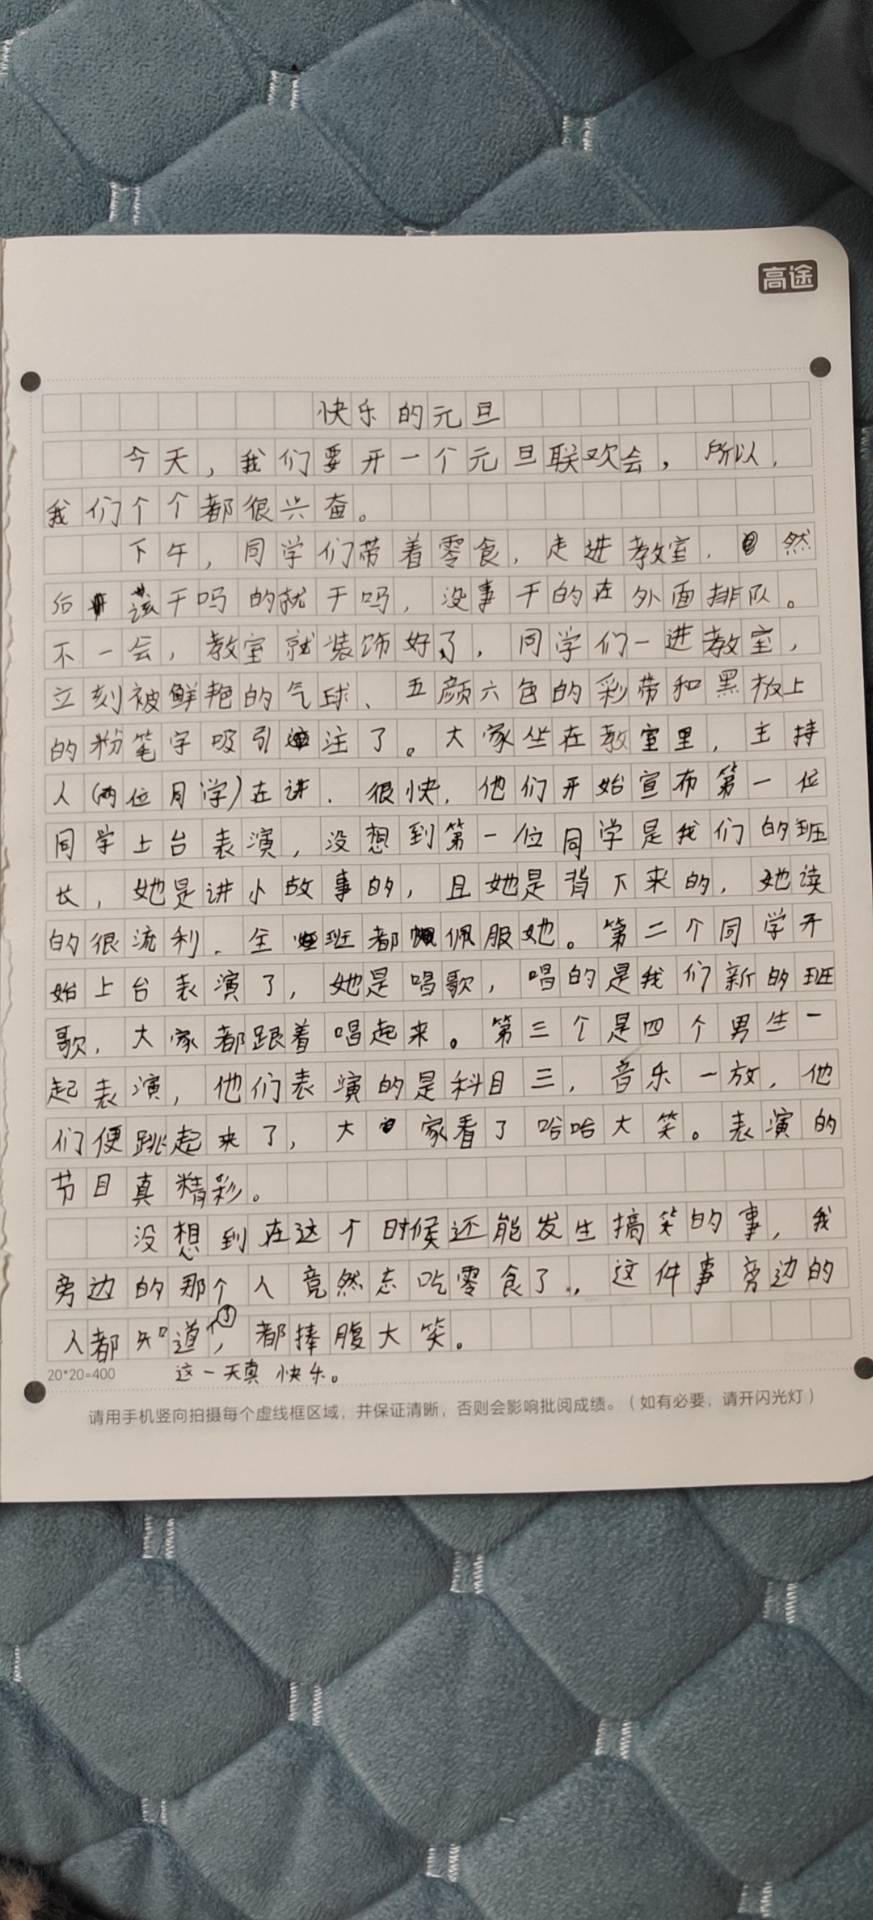 高途
快乐的元旦
今天，我们要开一个元旦联欢会，所以，
我们个个都很兴奋。
下午，同学们带着零食，走进教室，然
后该干吗的就干吗，没事干的在外面排队。
不一会，教室就装饰好了，同学们一进教室，
立刻被鲜艳的气球、五颜六色的彩带和黑板上
的粉笔字吸引注了。大家坐在教室里，主持
人(两位同学)在讲．很快，他们开始宣布第一位
同学上台表演，没想到第一位同学是我们的班
长，她是讲小故事的，且她是背下来的，她读
的很流利．全班都佩服她。第二个同学开
始上台表演了，她是唱歌，唱的是我们新的班
歌，大家都跟着唱起来。第三个是四个男生一
起表演，他们表演的是科目三，音乐一放，他
们便跳起来了，大家看了哈哈大笑。表演的
节目真精彩。
没想到在这个时候还能发生搞笑的事，我
旁边的那个人竟然忘吃零食了．，这件事旁边的
人都知道了，都捧腹大笑。
20*20=400 这一天真快乐。
请用手机竖向拍摄每个虚线框区域，并保证清晰，否则会影响批阅成绩。（如有必要，请开闪光灯）